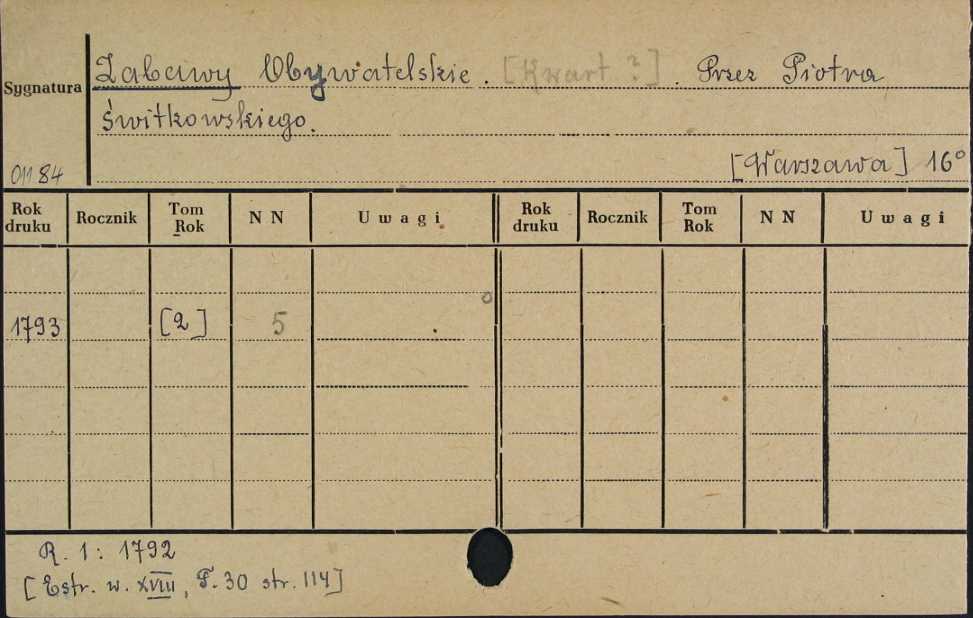 Sygnatura
Zabawy Obywatelskie. [Kwart ?]. Przez Piotra
Świtkowskiego.
01184
[Warszawa] 16°
Rok druku Rocznik Tom Rok N N Uwagi Rok druku Rocznik Tom Rok N N Uwagi
1793 [2] 5
R. 1: 1792
[Estr. w. XVIII, T. 30 str. 114]